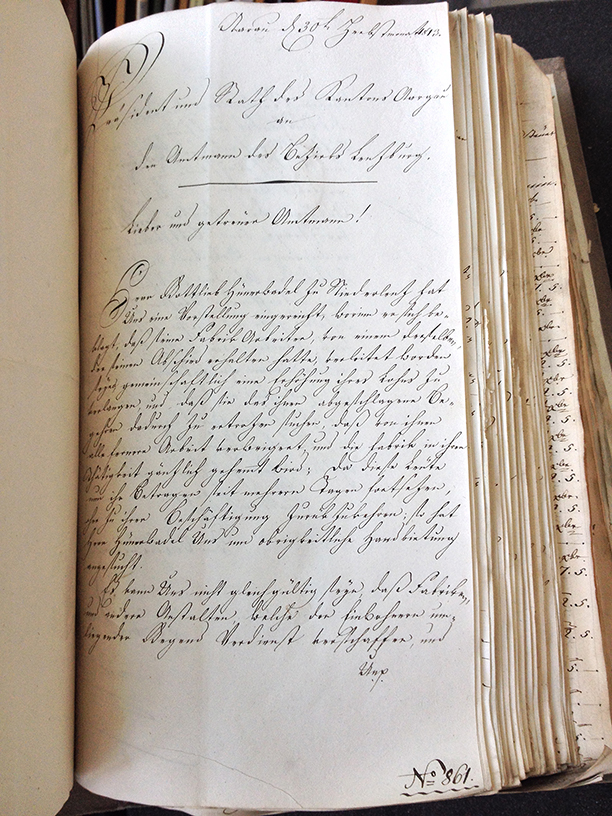 Aarau d. 30t Herbstmonat 1813.
Präsident und Rath des Kantons Aargau
an
den Amtmann des Bezirks Lenzburg.
Lieber und getreuer Amtmann!
Herr Gottlieb Hünerwadel zu Niederlenz hat
Uns eine Vorstellung eingereicht, worin er sich be-
klagt, daß seine Fabrik Arbeiter, von einem derselben,
der seinen Abschied erhalten hatte, verleitet worden
seyen gemeinschaftlich eine Erhöhung ihres Lohns zu
verlangen, und daß sie das ihnen abgeschlagene Be-
gehren dadurch zu ertrozen suchen, daß von ihnen
alle fernere Arbeit verweigert, und die Fabrik in ihrer
Thätigkeit gänzlich gehemt wird; Da diese Leute
nun ihr Betragen seit mehrern Tagen fortsetzen,
ohne zu ihrer Beschäftigung zurückzukehren, so hat
Herr Hünerwadel Uns um obrigkeitliche Handbietung
angesucht.
Es kann Uns nicht gleichgültig seyn, daß Fabriken,
und andere Anstalten, welche den Einwohnern um-
liegender Gegend Verdienst verschaffen, und
No 861.